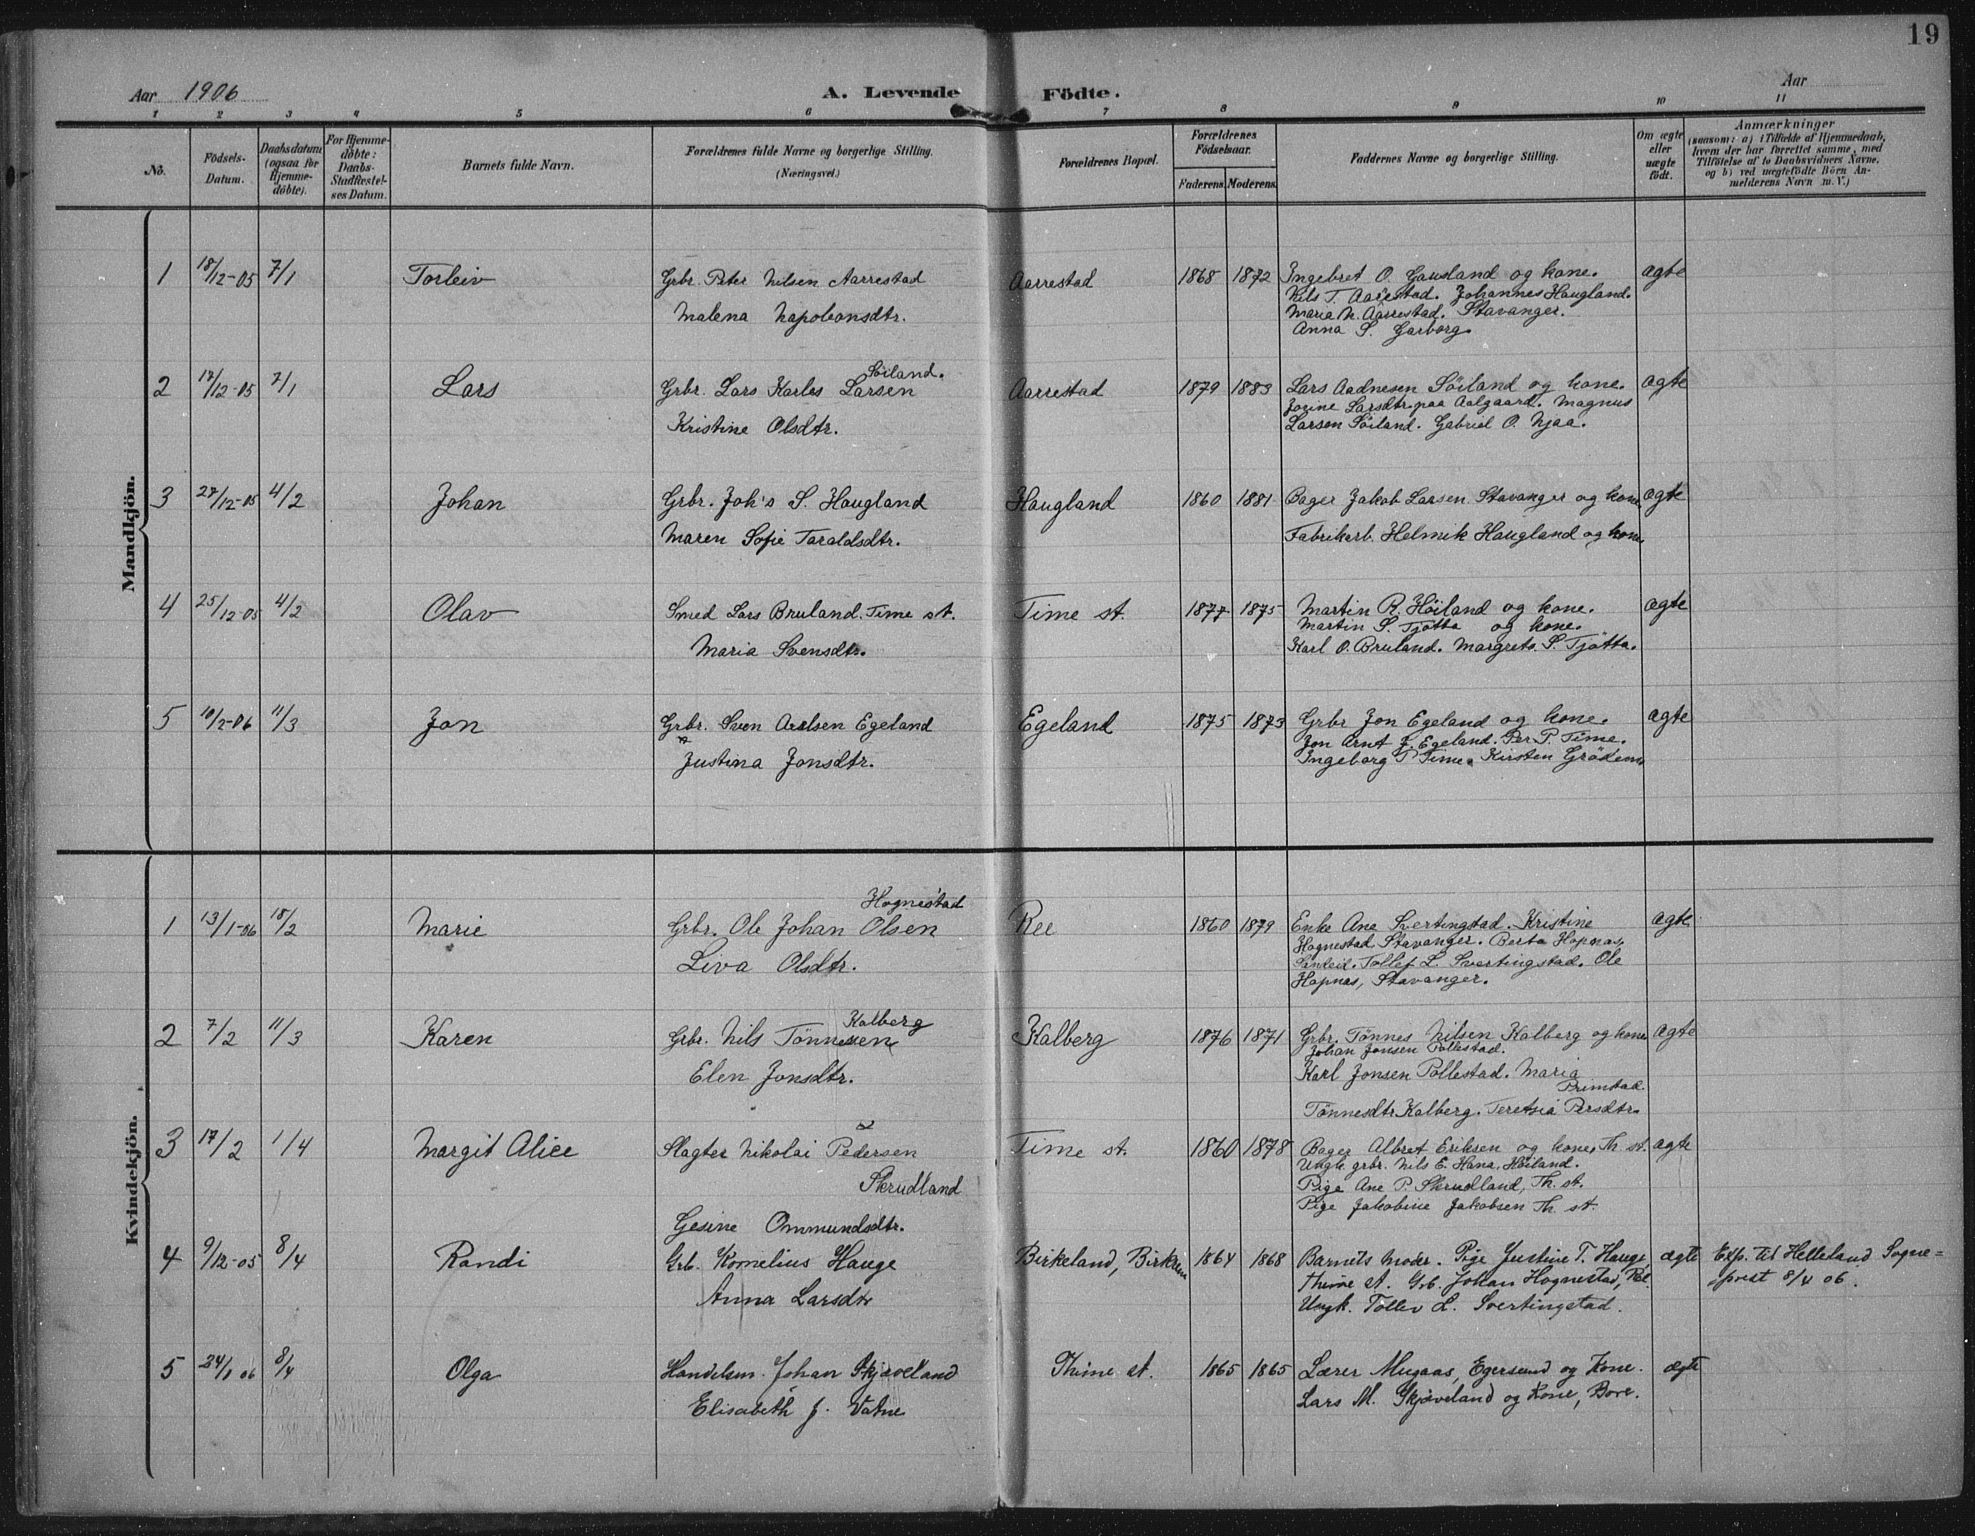 19
Aar 1906
A. Levende Födte.
Aar
1 2 3 4 5 6 7 8 9 10 11
No.
Födsels-Datum.
Daabsdatum (ogsaa for Hjemme-döbte).
For Hjemme-döbte: Daabs-Stadfæstel-ses Datum.
Barnets fulde Navn.
Forældrenes fulde Navne og borgerlige Stilling. (Næringsvei.)
Forældrenes Bopæl.
Forældrenes Födselsaar.
Faderens. Moderens.
Faddernes Navne og borgerlige Stilling.
Om ægte eller uægte födt.
Anmærkninger
(saasom: a) i Tilfælde af Hjemmedaab, hvem der har forrettet samme, med Tilföielse af to Daabsvidners Navne, og b) ved uægtefödte Börn An-melderens Navn m. V.)
Mandkjön.
1 18/12-05 7/1 Torleiv Grbr. Peter Nilsen Aarrestad Aarrestad 1868 1872 Ingebret O. Gausland og kone. ægte
Nils T. Aarestad. Johannes Haugland.
Malena Napoleonsdtr. Maria N. Aarrestad. Stavanger.
Anna S. Garborg.
Söiland.
2 17/12-05 7/1 Lars Grbr. Lars Karlos Larsen Aarrestad 1879 1883 Lars Aadnesen Söiland og kone. ægte
Jorine Larsdtr. paa Aalgaard. Magnus
Kristine Olsdtr. Larsen Söiland. Gabriel O. Njaa.
3 27/12-05 4/2 Johan Grbr. Joh's S. Haugland Haugland 1860 1881 Bager Jakob Larsen Stavanger og kone ægte
Maren Sofie Taraldsdtr. Fabrikarb. Helmik Haugland og kone.
4 25/12 05 4/2 Olav Smed Lars Bruland. Time st. Time st. 1877 1875 Martin R. Höiland og kone. ægte
Martin S. Tjötta og kone.
Maria Svensdtr. Karl O. Bruland. Margrete S. Tjötta.
5 10/2-06 11/3 Jon Grbr. Sven Axelsen Egeland Egeland 1875 1873 Grbr Jon Egeland og kone. ægte
Jon Arnt J. Egeland. Per P. Time.
Justina Jonsdtr. Ingeborg P Time. Kirsten Grödem
Kvindekjön.
Hognestad
1 13/1-06 18/2 Marie Grbr. Ole Johan Olsen Ree 1860 1879 Enke Ane Svertingstad. Kristine ægte
Hognestad Stavanger. Berta Hopnas,
Liva Olsdtr. Sandeid. Tollef L. Svertingstad. Ole
Hapnes, Stavanger.
Kalberg
2 7/2 11/3 Karen Grbr. Nils Tönnesen Kalberg 1876 1871 Grbr. Tönnes Nilsen Kalberg og kone ægte
Johan Jonsen Pollestad.
Elen Jonsdtr. Karl Jonsen Pollestad. Maria
Primstad.
Tönnesdtr Kalberg. Teretsia Persdtr.
3 17/2 1/4 Margit Alice Slagter Nikolai Pedersen Time st. 1860 1878 Bager Albret Eriksen og kone, Th st. ægte
Ungk grbr. Nils E. Hana, Höiland.
Skrudland Pige Ane P. Skrudland, Th. st.
Pige Jakobine Jakobsen Th. st.
Gesine Ommundsdtr.
4 9/12-05 8/4 Randi Grb. Kornelius Hauge Birkeland, Birkrem 1864 1868 Barnets Moder. Pige Justine T. Hauge, ægte Exp. til Helleland Sogne=
Thime st. Grb. Johan Hognestad, prest 8/4 06.
Anna Larsdtr Ungk. Tollev L. Svertingstad.
5 24/1 06 8/4 Olga Handelsm. Johan Skjæveland Thime st. 1865 1865 Lærer Mugaas, Egersund og Kone. ægte
Elisabeth J. Vatne Lars M. Skjæveland og Kone, Bore.